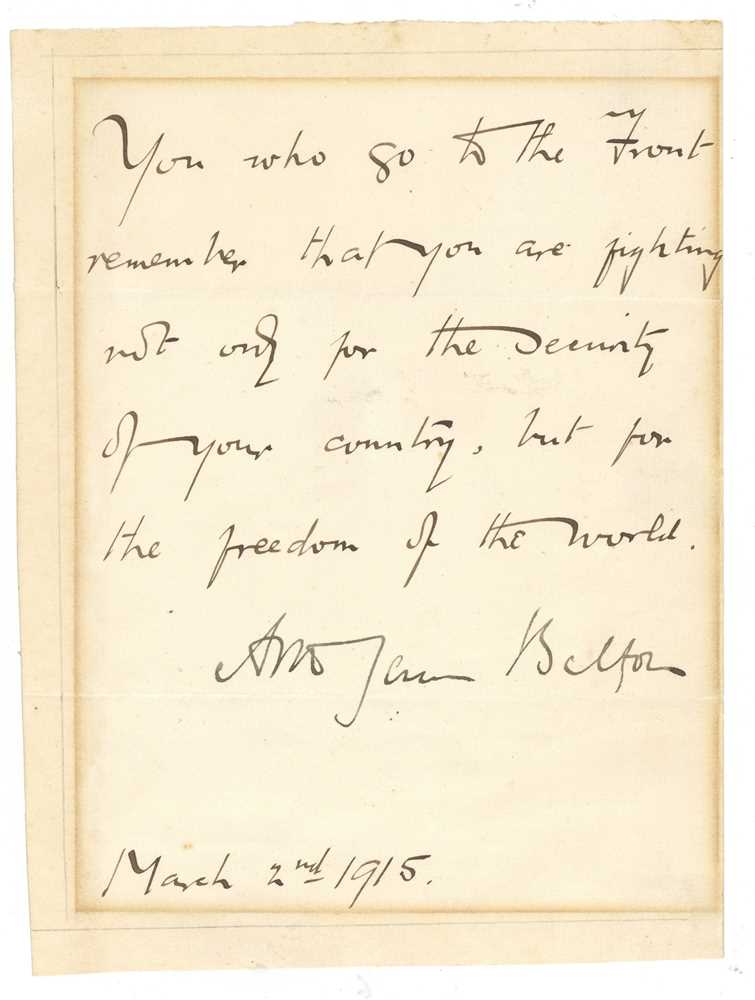 You who go to the Front
remember that you are fighting
not only for the Security
of your country, but for
the freedom of the world.
Arthur James Balfour
March 2nd 1915.